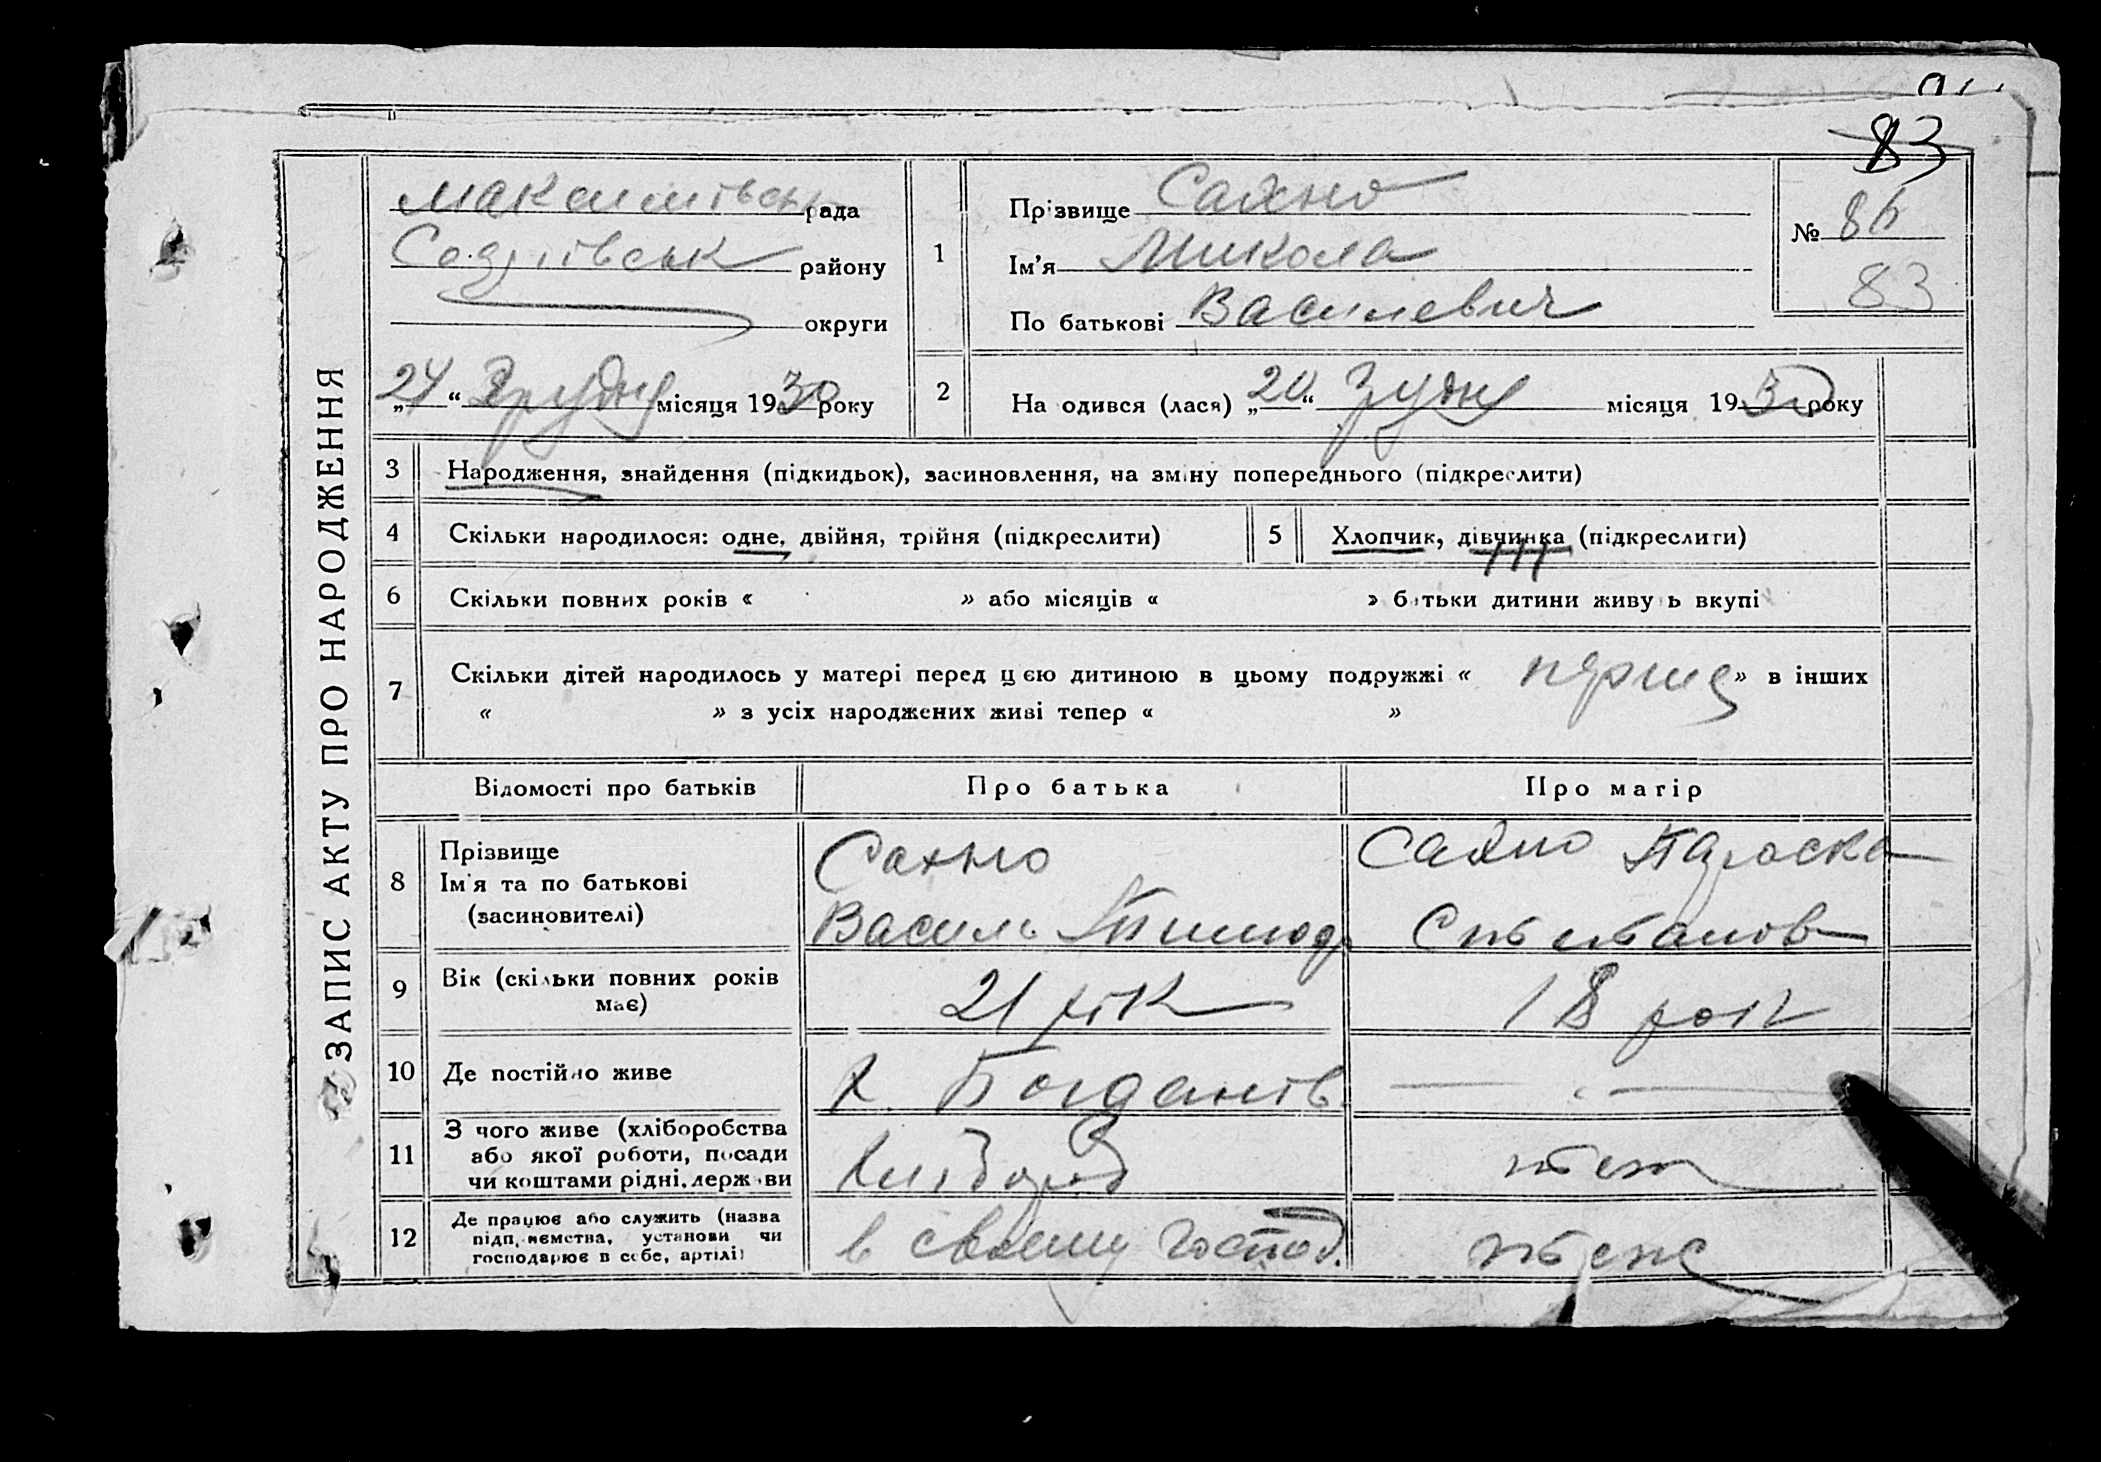 83
ЗАПИС АКТУ ПРО НАРОДЖЕННЯ
Максимівськ рада
району
округи
„24“ Грудня місяця 1930 року
1
Прізвище Сахно
Ім’я Микола
По батькові Василевич
№ 86
83
2
На одився (лася) „20“ Грудня місяця 1930 року
3 Народження, знайдення (підкидьок), засиновлення, на зміну попереднього (підкреслити)
4 Скільки народилося: одне, двійня, трійня (підкреслити)
5 Хлопчик, дівчинка (підкреслити)
6 Скільки повних років « » або місяців « » батьки дитини живуть вкупі
7 Скільки дітей народилось у матері перед цією дитиною в цьому подружжі « перше » в інших
« » з усіх народжених живі тепер « »
Відомості про батьків Про батька Про матір
8 Прізвище
Ім'я та по батькові
(засиновителі)
Сахно
Василь Тимоф
Сахно Параска
Степанов
9 Вік (скільки повних років
має)
21 рік
18 рок
10 Де постійно живе
Х. Богданів.
— " —
11 З чого живе (хліборобства
або якої роботи, посади
чи коштами рідні, держави
Хлібороб
теж
12 Де працює або служить (назва
підприємства, установи чи
господарює в себе, артілі)
в своему господ.
теж